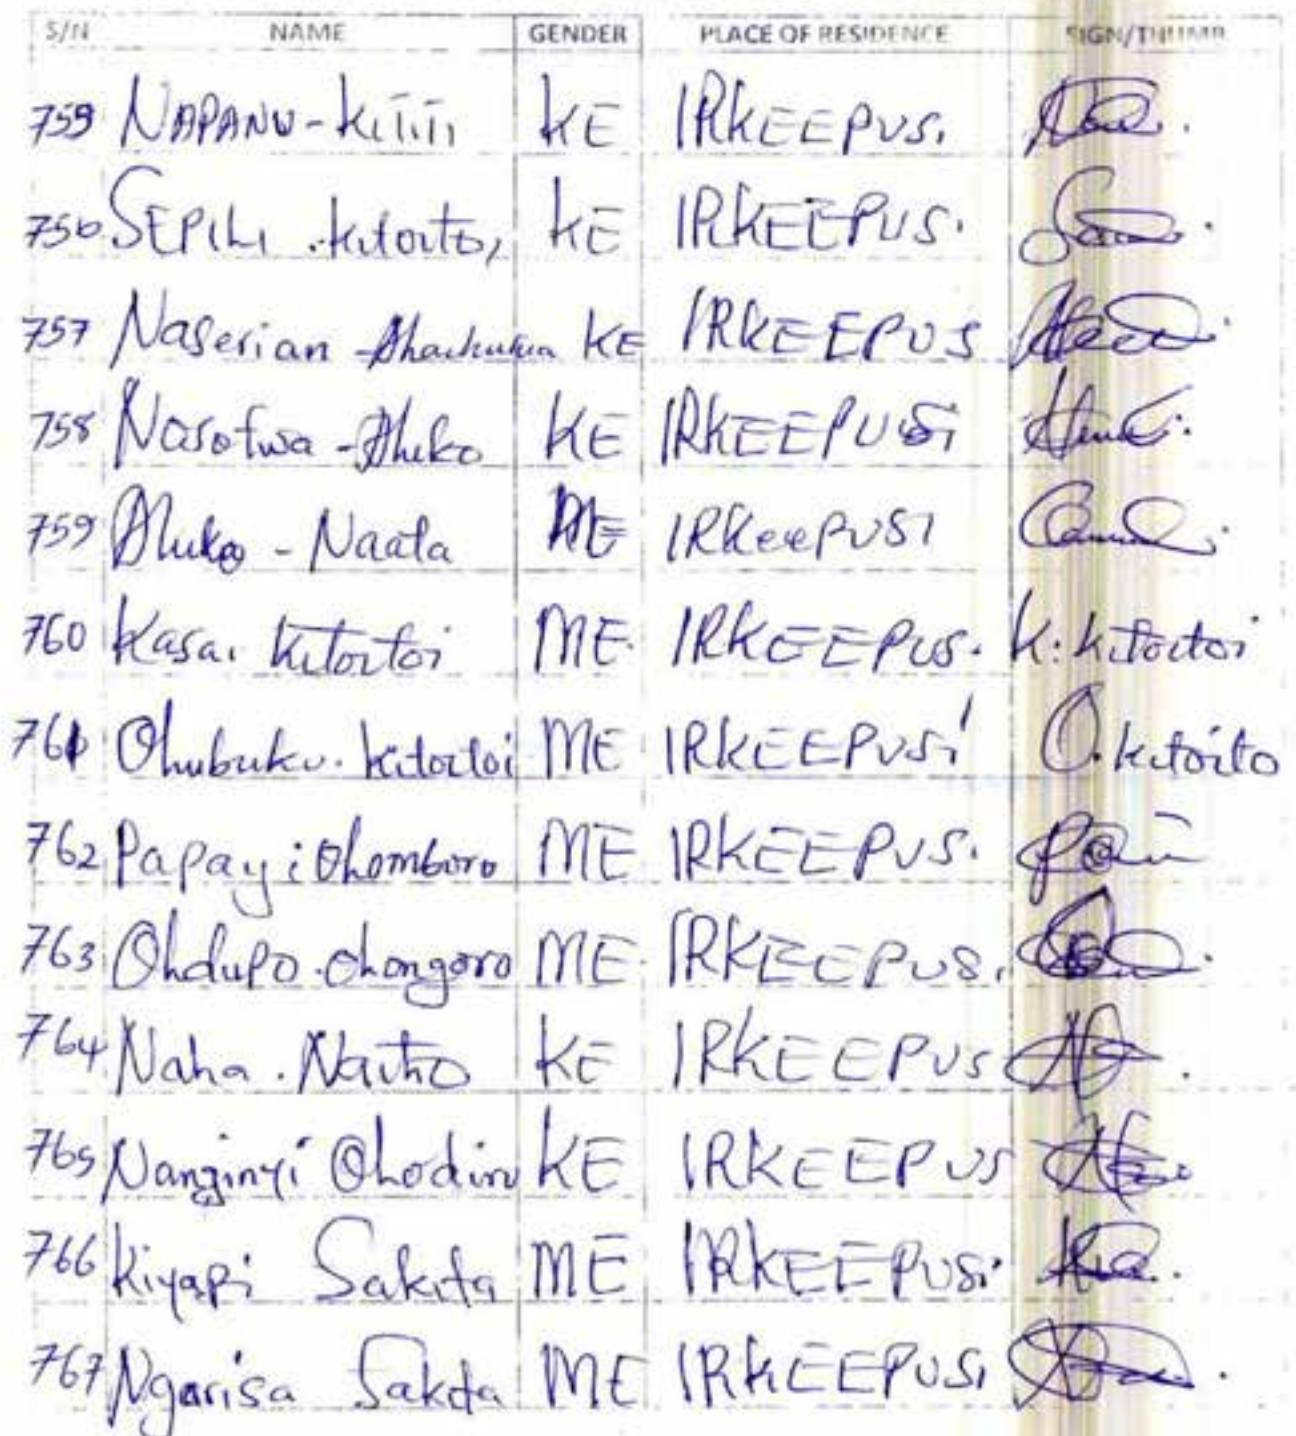 S/N NAME GENDER PLACE OF RESIDENCE SIGN/THUMB
755 NAPANU-KiTiTi KE IRKEEPUSi
756 SEPILI .kitoitoi KE IRKEEPUSi
757 Naserian - KE IRKEEPUS
758 Nasotwa - KE IRKEEPUSi
759 - Naata ME IRKeePUSI
760 Kasai Kitoitoi ME IRKEEPUSi K. Kitoitoi
761 Olubuku. Kitoitoi ME IRKEEPUSi O. kitoito
762 Papayi Olomboro ME IRKEEPUSi
763 Oldupo. olongoro ME IRKEEPUSi
764 Naha. Naito KE IRKEEPUS
765 Nanginyi KE IRKEEPUS
766 Kiyapi Sakita ME IRKEEPUSi
767 Ngarisa Sakita ME IRKEEPUSi